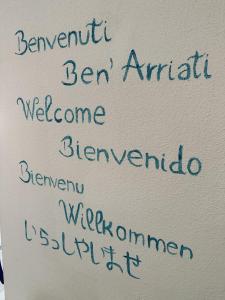 Benvenuti
Ben' Arriati
Welcome
Bienvenido
Bienvenu
Willkommen
いらっしゃいませ